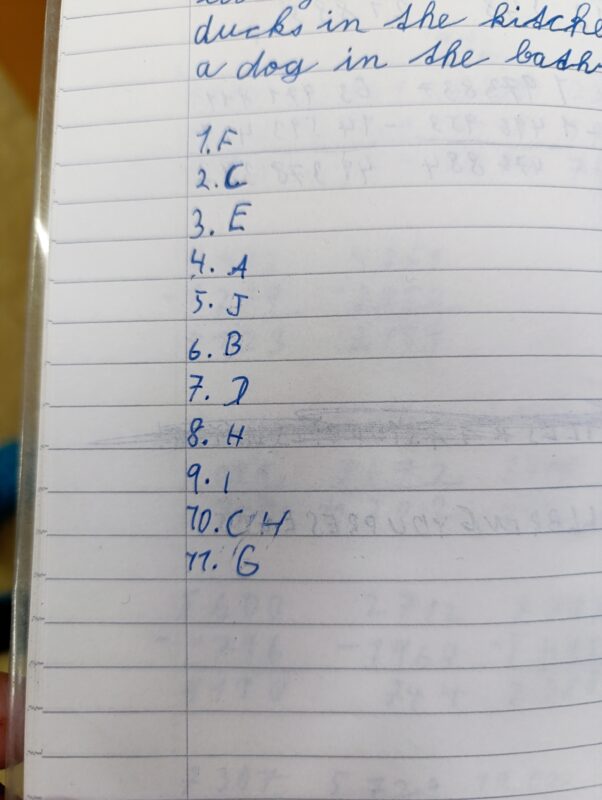 ducks in the kitche
a dog in the bath
1. F
2. C
3. E
4. A
5. J
6. B
7. D
8. H
9. I
10. CH
11. G